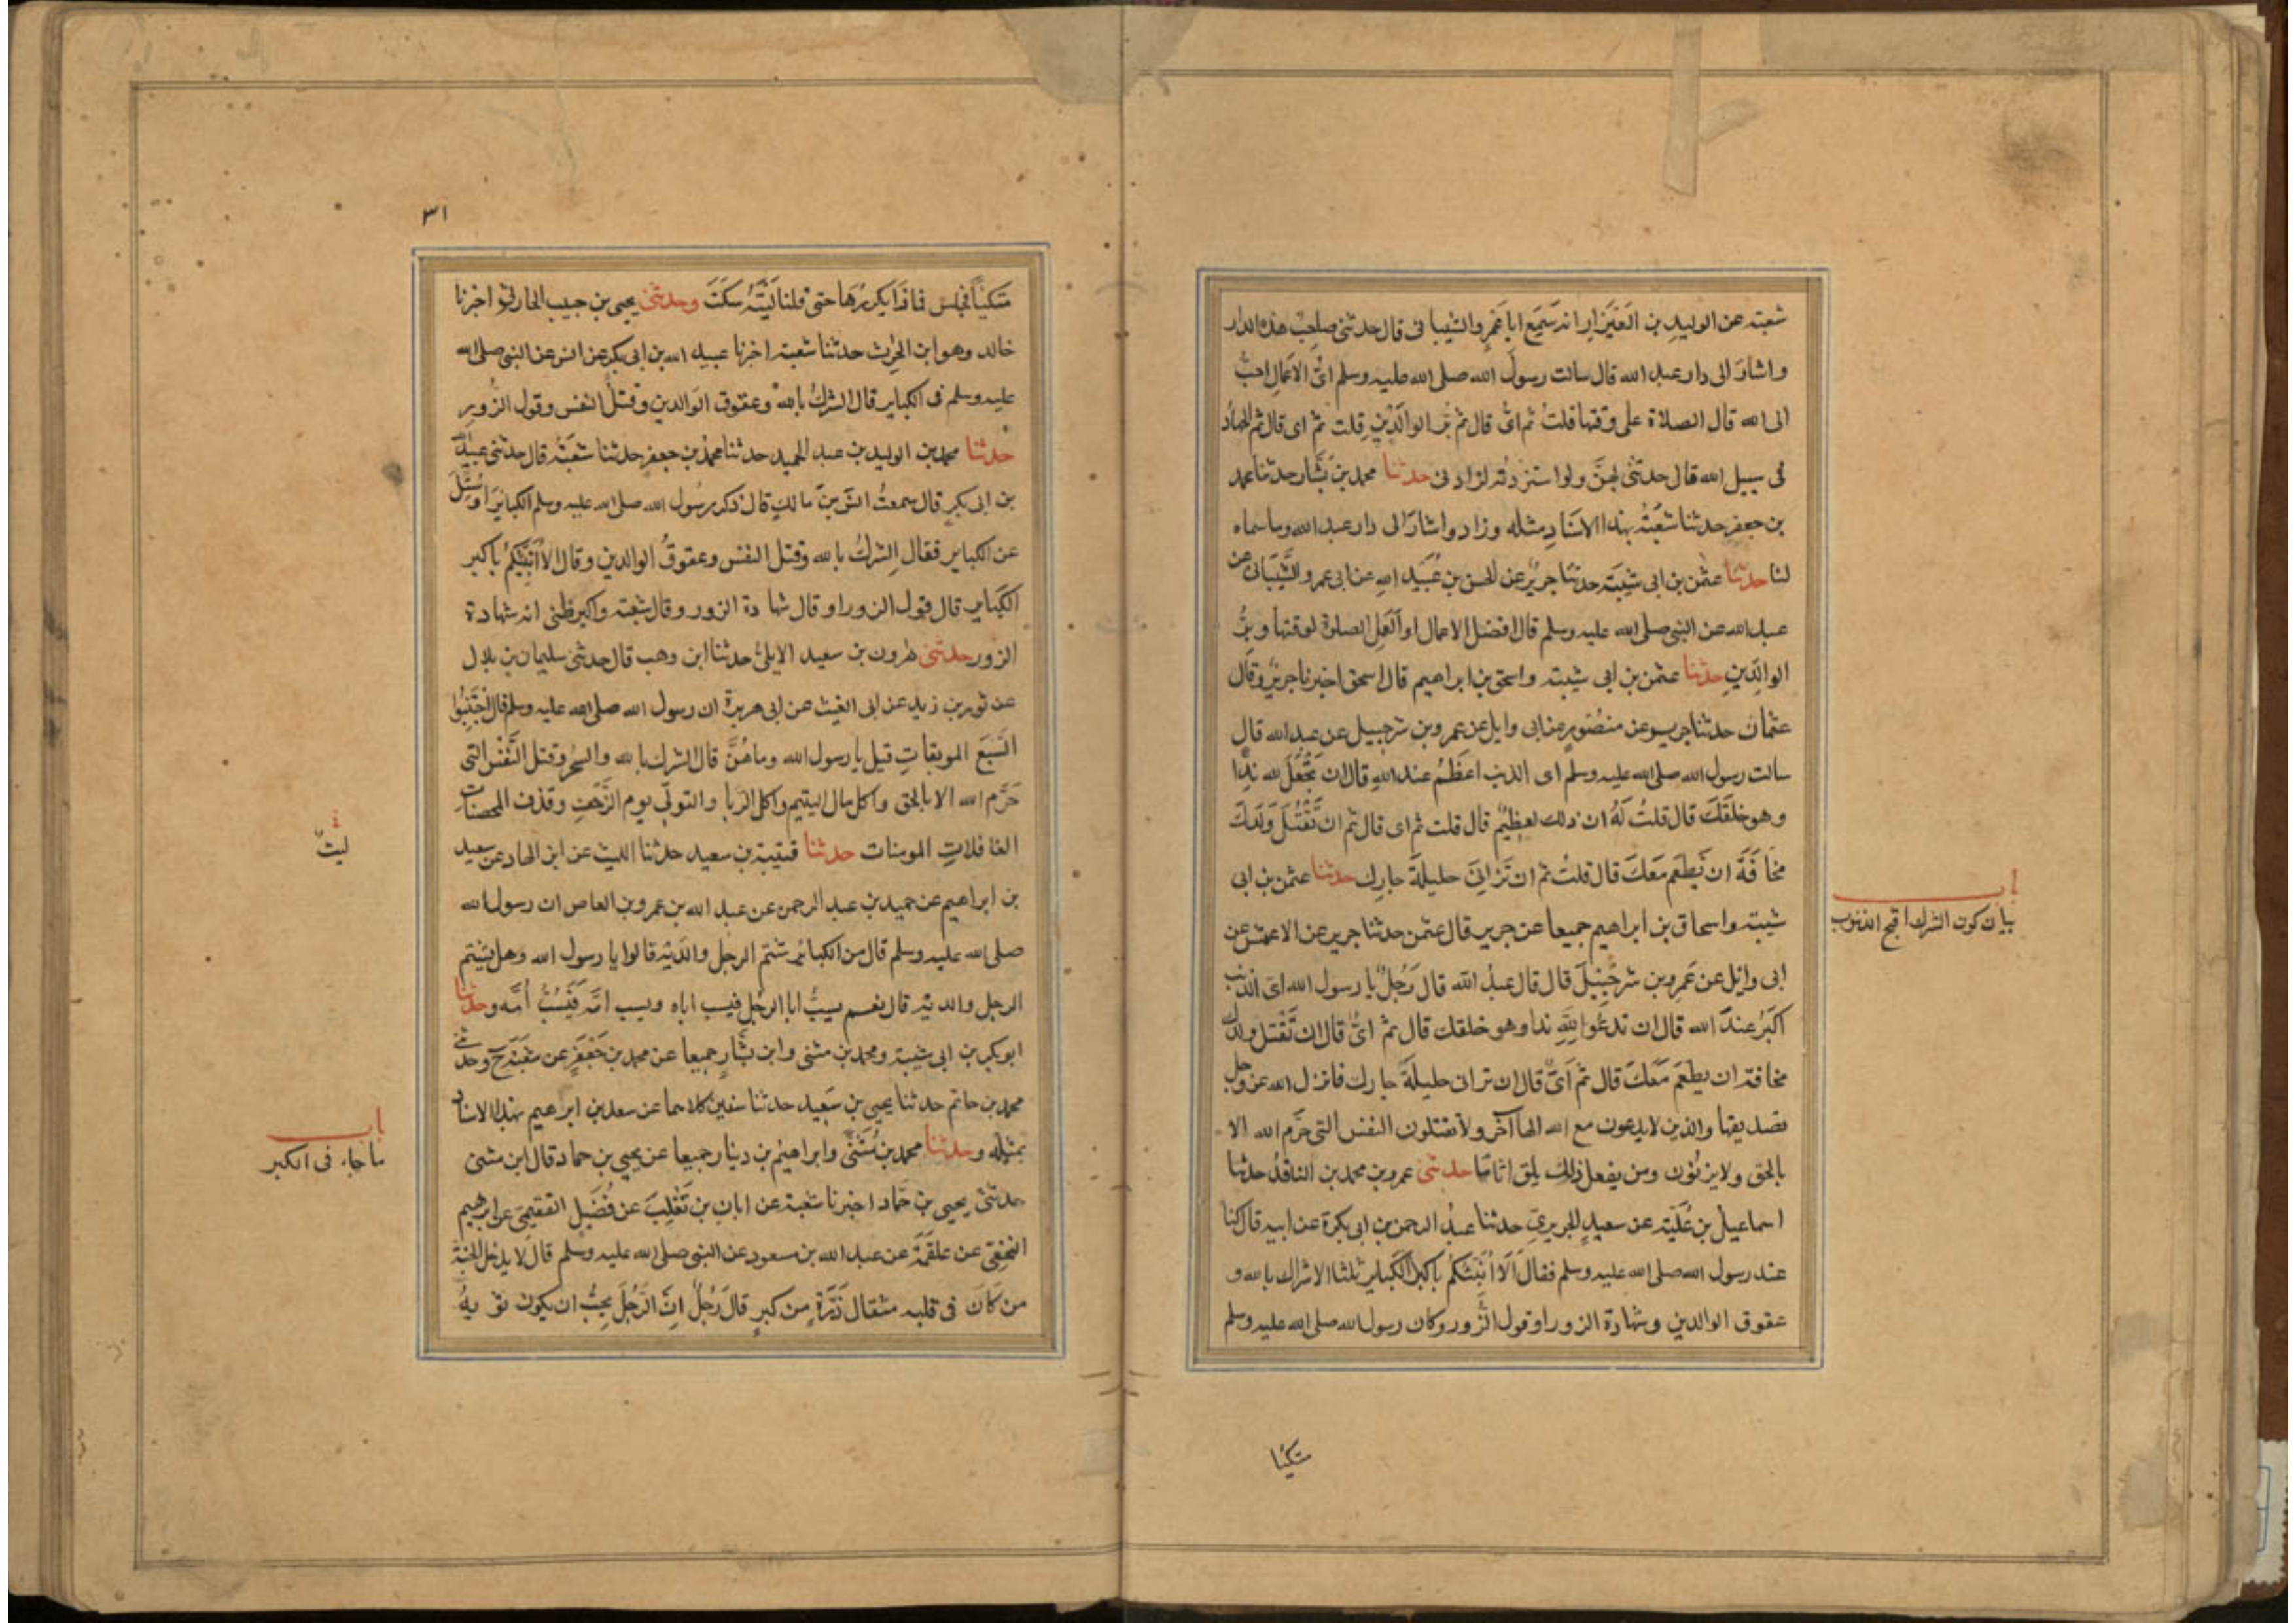 شعبة عن الوليد بن العَيْزار انه سَمِعَ ابا عَمرٍو الشيبا نى قال حدثنى صاحِبُ هذه الدار
واشارَ الى دار عبد الله قال سالت رسولَ الله صلى الله عليه وسلم اىُّ الاعمال احبُّ
الى الله قال الصلاة على وقتها قلتُ ثم اىُّ قال ثم بِرُّ الوالدَيْنِ قلت ثم اى قال ثم الجهادُ
فى سبيل الله قال حدثنى بهنَّ ولو استزدتُه لزادنى حدثنا محمد بن بَشَّار حدثنا محمد
بن جعفرٍ حدثنا شعْبَةُ بهذا الاسنَادِ مثله وزاد واشارَ الى دار عبد الله وما سماه
لنا حدثنا عثمن بن ابى شيبَة حدثنا جريرٌ عن الحسن بن عُبَيد اللهِ عن ابى عمرو الشَّيْبَانى عن
عبد الله عن النبى صلى الله عليه وسلم قال افضل الاعمال او العَمَل الصلوة لوقتها وبِرُّ
الوالِدَينِ حدثنا عثمن بن ابى شيبة واسحق بن ابراهيم قال اسحق اخبرنا جريرٌ وقال
عثمان حدثنا جرير عن منصُورٍ عن ابى وايل عن عمرو بن شرحبيل عن عبد الله قال
سالت رسول الله صلى الله عليه وسلم اى الذنب اعظَمُ عند اللهِ قال ان تجْعَلَ لله نِدا
وهو خلقَكَ قال قلتُ لَهُ ان ذلك لعظِيمٌ قال قلت ثم اى قال ثم ان تَقتُلَ وَلَدَكَ
مخَافَةَ ان يَطعَمَ مَعَكَ قال قلتُ ثم اى قال ثم ان تُزَانِىَ حليلةَ جارِك حدثنا عثمن بن ابى
شيبة واسحاق بن ابراهيم جميعا عن جرير قال عثمن حدثنا جرير عن الاعمش عن
ابى وايَل عن عَمرو بن شرحْبِيلَ قال قال عبدُ الله قال رَجُلٌ يا رسول الله اى الذنب
اكبَرُ عندَ الله قال ان تدعُوَا لِلَّهِ ندا وهو خلقك قال ثم اىٌّ قال ان تَقْتل ولدك
مخافة ان يطعَمَ مَعَكَ قال ثم اَىٌّ قال ان تزانى حليلةَ جارك فانزل الله عز وجل
تصديقها والذين لا يدعون مع الله الها آخَر ولا يقتلون النفس التى حَرَّم الله الا
بالحق ولا يزنُون ومن يفعل ذلك يلق اثاما حدثنى عمرو بن محمد بن الناقدُ حدثنا
اسماعيل بن عُلَيَّة عن سعيدٍ الجريرىِّ حدثنا عبدُ الرحمن بن ابى بكرة عن ابيه قال كنا
عند رسول الله صلى الله عليه وسلم فقال اَلَا اُنَبِّئُكُمْ باكبر الكَبَاير ثلثا الاشراك بالله و
عقوق الوالدين وشهادة الزور او قول الزُّور وكان رسول الله صلى الله عليه وسلم
متكيًا
باب
بيان كون الشرك اقبح الذنوب
٣١
متكيًا فجلس فما ذَا يكررُهَا حتى قلنا لَيْتَهُ سَكَتَ وحدثنى يحيى بن حبيب الحارثىُّ اخبرنا
خالد وهو ابن الحرث حدثنا شعبة اخبرنا عبيد الله بن ابى بكر عن انس عن النبى صلى الله
عليه وسلم فى الكباير قال الشركُ بالله وعقوق الوَالدين وقتلُ النفس وقول الزُّور
حدثنا محمد بن الوليد بن عبد الحميد حدثنا محمد بن جعفر حدثنا شعْبَةُ قال حدثنى عبيد الله
بن ابى بكرٍ قال سمعتُ انَسَ بنَ مالكٍ قال ذكر رسُول الله صلى الله عليه وسلم الكبايرَ او سُئِلَ
عن الكباير فقال الشركُ بالله وقتل النفس وعقوقُ الوالدين وقال الا اُنَبِّئُكُمْ باكبر
الكبَاير قال قول الزور او قال شهادة الزور وقال شعبة واكبر ظنى انه شهادة
الزور حدثنى هرون بن سعيد الايلىُّ حدثنا ابن وهب قال حدثنى سليمان بن بلال
عن ثور بن زيد عن ابى الغيث عن ابى هريرة ان رسول الله صلى الله عليه وسلم قال اجْتَنِبُوا
السَّبعَ الموبقاتِ قيل يا رسول الله وما هُنَّ قال الشرك بالله والسحر وقتل النَّفْس التى
حَرَّم الله الا بالحق واكل مال اليتيم واكل الربا والتولّى يوم الزَّحفِ وقذف المحصنات
الغافلاتِ المومنات حدثنا قتيبة بن سعيد حدثنا الليث عن ابن الهاد عن سعيد
بن ابراهيم عن حميد بن عبد الرحمن عن عبد الله بن عمرو بن العاص ان رسول الله
صلى الله عليه وسلم قال من الكبائر شتم الرجل والدَيْه قالوا يا رسول الله وهل يشتم
الرجل والديه قال نعم يسبُّ ابا الرجُل فيسب اباه ويسب امَّه فَيَسُبُّ اُمَّه وحدثنا
ابو بكر بن ابى شيبة ومحمد بن مثنى وابن بَشَّارٍ جميعا عن محمد بن جَعْفَرٍ عن شعْبَة ح وحدثنى
محمد بن حاتم حدثنا يحيى بن سَعِيد حدثنا سفين كلاهما عن سعد بن ابراهيم بهذا الاسناد
بمثلِه وحدثنا محمد بن مُثَنَّى وابراهيم بن دينار جميعا عن يحيى بن حماد قال ابن مثنى
حدثنى يحيى بن حَمَّاد اخبرنا شعْبة عن ابان بن تَغْلِبَ عن فُضَيل الفقيمىّ عن ابرهيم
النخعىّ عن علقَمَة عن عبد الله بن مسعود عن النبى صلى الله عليه وسلم قال لا يدخل الجنة
من كانَ فى قلبه مثقال ذَرَّةٍ من كبرٍ قالَ رَجُلٌ اِنَّ الرَّجُلَ يحِبُّ ان يكون ثوبهُ
ليث
باب
ما جاء فى الكبر